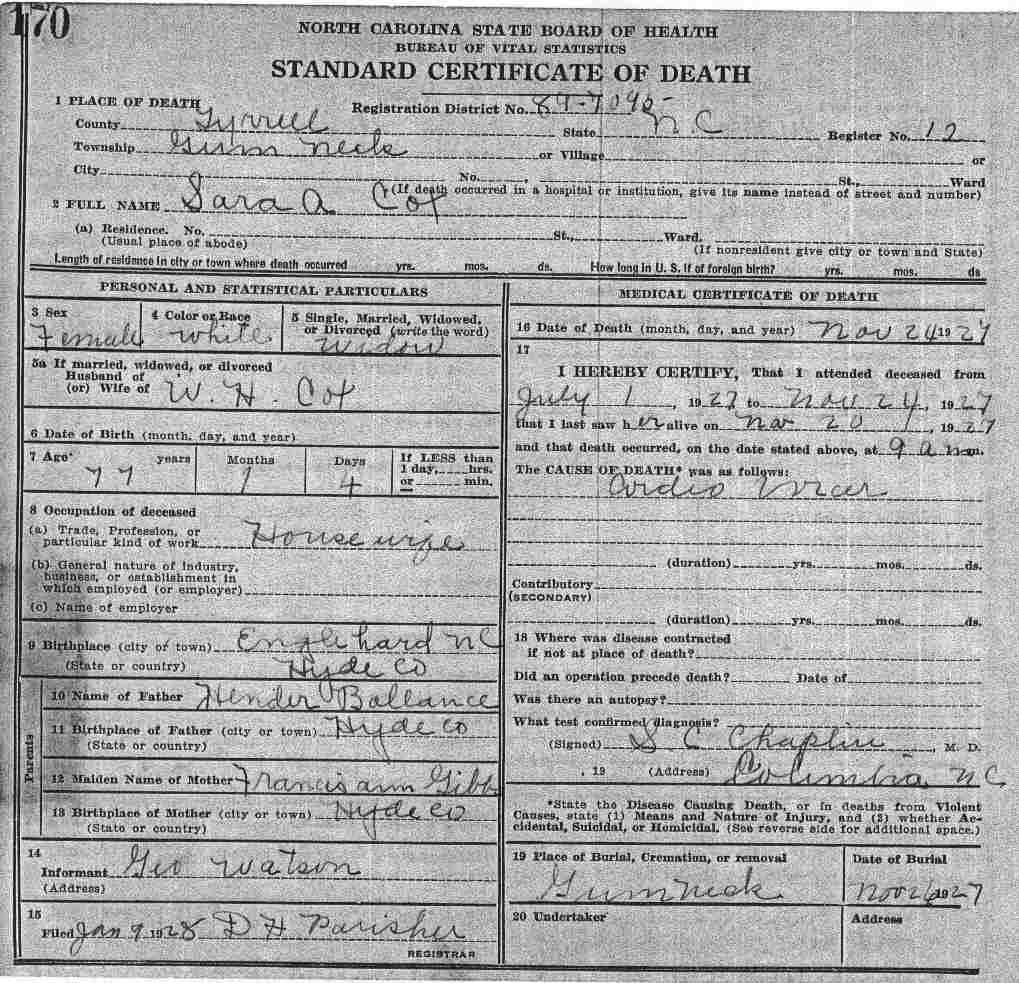 170
NORTH CAROLINA STATE BOARD OF HEALTH
BUREAU OF VITAL STATISTICS
STANDARD CERTIFICATE OF DEATH
1 PLACE OF DEATH Registration District No. 89-7095
County Tyrrell State N.C Register No. 12
Township Gum Neck or Village or
City No. , St., Ward
(If death occurred in a hospital or institution, give its name instead of street and number)
2 FULL NAME Sara A Cox
(a) Residence. No. St., Ward,
(Usual place of abode) (If nonresident give city or town and State)
Length of residence in city or town where death occurred yrs. mos. ds. How long in U. S. if of foreign birth? yrs. mos. ds
PERSONAL AND STATISTICAL PARTICULARS
3 Sex 4 Color or Race 5 Single, Married, Widowed,
or Divorced (write the word)
Female White Widow
5a If married, widowed, or divorced
Husband of
(or) Wife of W. H. Cox
6 Date of Birth (month, day, and year)
7 Age* years Months Days If LESS than
1 day, hrs.
or min.
77 1 4
8 Occupation of deceased
(a) Trade, Profession, or
particular kind of work Housewife
(b) General nature of industry,
business, or establishment in
which employed (or employer)
(c) Name of employer
9 Birthplace (city or town) Englehard NC
(State or country) Hyde Co
Parents
10 Name of Father Hender Ballance
11 Birthplace of Father (city or town) Hyde Co
(State or country)
12 Maiden Name of Mother Francis ann Gibb
13 Birthplace of Mother (city or town) Hyde Co
(State or country)
14
Informant Geo Watson
(Address)
15
Filed Jan 9, 1928 D H Parisher
REGISTRAR
MEDICAL CERTIFICATE OF DEATH
16 Date of Death (month, day, and year) Nov 24 1927
17
I HEREBY CERTIFY, That I attended deceased from
July 1, 1927 to Nov 24, 1927
that I last saw her alive on Nov 20, 1927
and that death occurred, on the date stated above, at 9 a m.
The CAUSE OF DEATH* was as follows:
Cardio
(duration) yrs. mos. ds.
Contributory
(SECONDARY)
(duration) yrs. mos. ds.
18 Where was disease contracted
if not at place of death?
Did an operation precede death? Date of
Was there an autopsy?
What test confirmed diagnosis?
(Signed) S C Chaplin, M. D.
, 19 (Address) Columbia NC
*State the Disease Causing Death, or in deaths from Violent
Causes, state (1) Means and Nature of Injury, and (2) whether Ac-
cidental, Suicidal, or Homicidal. (See reverse side for additional space.)
19 Place of Burial, Cremation, or removal Date of Burial
Gum neck Nov 26 1927
20 Undertaker Address